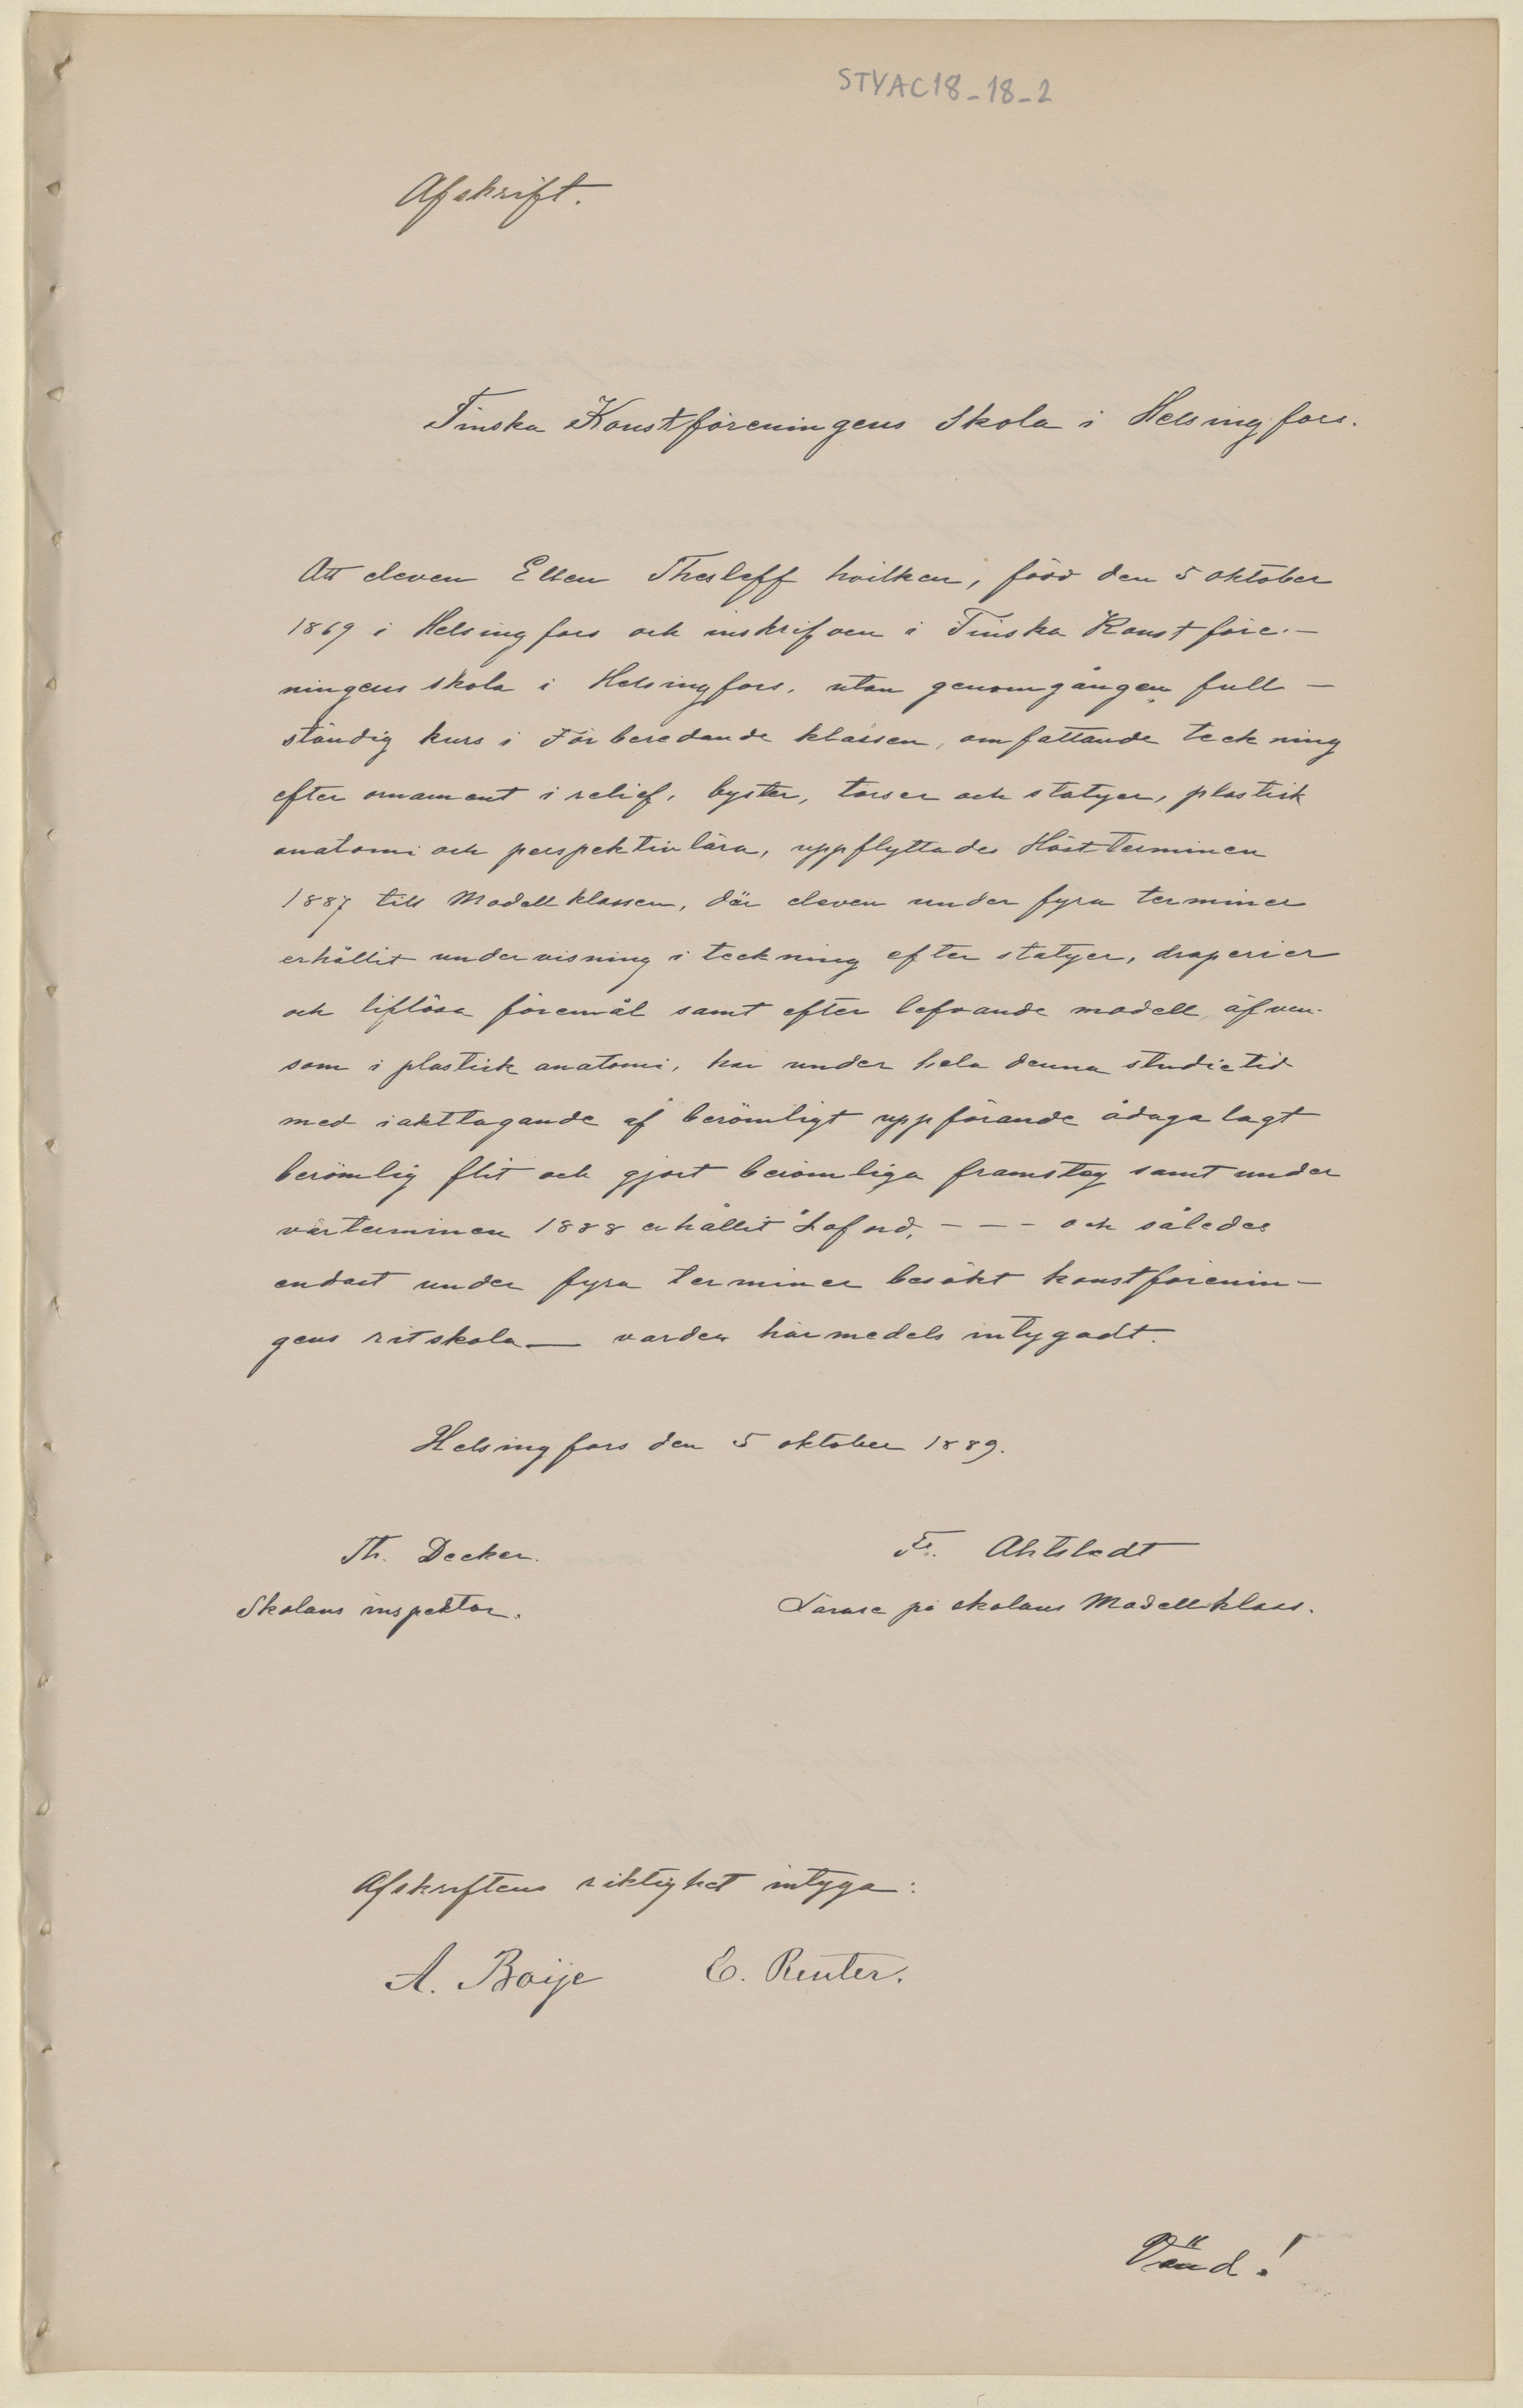 STYAC18_18_2
Afskrift.
Finska Konstföreningens Skola i Helsingfors.
Att eleven Ellen Thesleff hvilken, född den 5 oktober
1869 i Helsingfors och inskrifven i Finska Konstföre-
ningens skola i Helsingfors, utan genomgången full-
ständig kurs i Förberedande klassen, omfattande teckning
efter ornament i relief, byster, torser och statyer, plastisk
anatomi och perspektivlära, uppflyttades Höstterminen
1887 till Modellklassen, där eleven under fyra terminer
erhållit undervisning i teckning efter statyer, draperier
och liflösa föremål samt efter lefvande modell, äfven-
som i plastisk anatomi, har under hela denna studietid
med iakttagande af berömligt uppförande ådagalagt
berömlig flit och gjort berömliga framsteg samt under
vårterminen 1888 erhållit Loford, - - - och således
endast under fyra terminer besökt konstförenin-
gens ritskola — varder härmedels intygadt.
Helsingfors den 5 oktober 1889.
Th. Decker. Fr. Ahlstedt
Skolans inspektor. Lärare på skolans Modellklass.
Afskriftens riktighet intyga:
A. Boije E. Reuter.
Vänd!